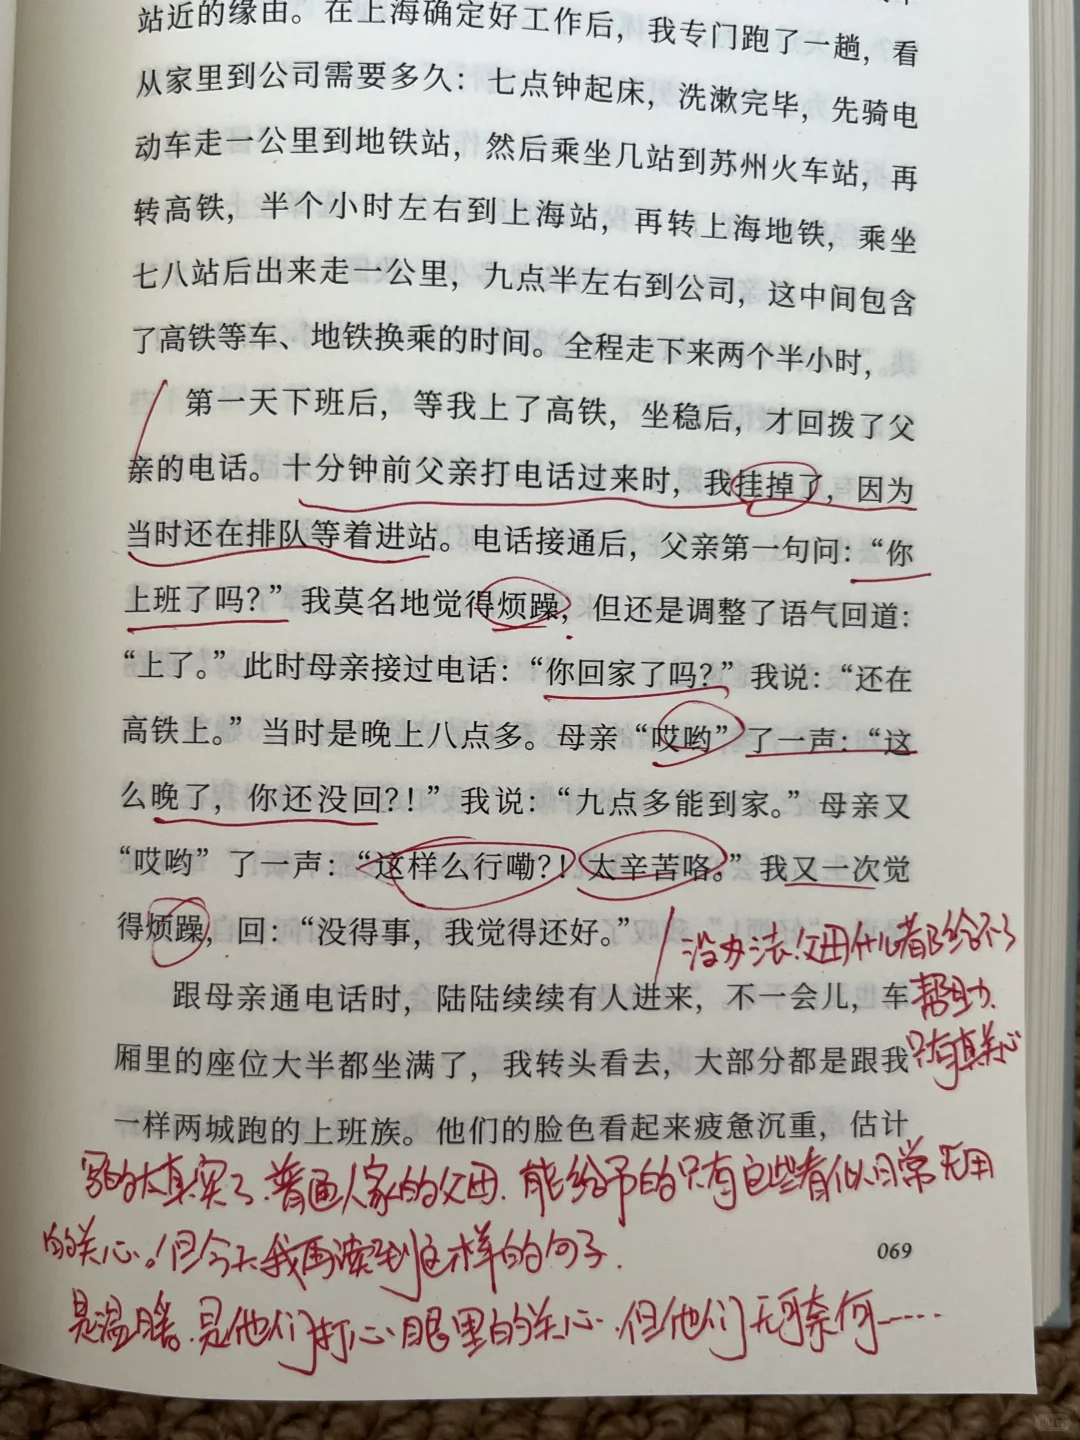 站近的缘由。在上海确定好工作后，我专门跑了一趟，看
从家里到公司需要多久：七点钟起床，洗漱完毕，先骑电
动车走一公里到地铁站，然后乘坐几站到苏州火车站，再
转高铁，半个小时左右到上海站，再转上海地铁，乘坐
七八站后出来走一公里，九点半左右到公司，这中间包含
了高铁等车、地铁换乘的时间。全程走下来两个半小时，
第一天下班后，等我上了高铁，坐稳后，才回拨了父
亲的电话。十分钟前父亲打电话过来时，我挂掉了，因为
当时还在排队等着进站。电话接通后，父亲第一句问：“你
上班了吗？”我莫名地觉得烦躁，但还是调整了语气回道：
“上了。”此时母亲接过电话：“你回家了吗？”我说：“还在
高铁上。”当时是晚上八点多。母亲“哎哟”了一声：“这
么晚了，你还没回？！”我说：“九点多能到家。”母亲又
“哎哟”了一声：“这样么行嘞？！太辛苦咯。”我又一次觉
得烦躁，回：“没得事，我觉得还好。”
没办法，父母什么都给不了
帮助.
只有真关心
跟母亲通电话时，陆陆续续有人进来，不一会儿，车
厢里的座位大半都坐满了，我转头看去，大部分都是跟我
一样两城跑的上班族。他们的脸色看起来疲惫沉重，估计
写的太真实了.普通人家的父母.能给予的只有这些看似日常无用
的关心。但今天我再读到这样的句子.
是温暖.是他们打心眼里的关心.但他们无可奈何……
069